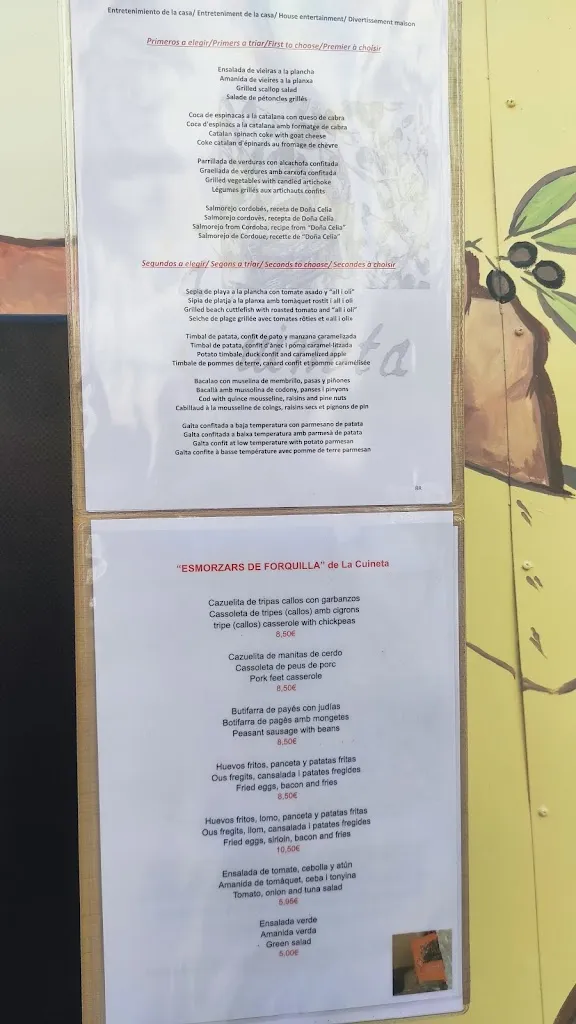 Entretenimiento de la casa/ Entreteniment de la casa/ House entertainment/ Divertissement maison
Primeros a elegir/Primers a triar/First to choose/Premier à choisir
Ensalada de vieiras a la plancha
Amanida de vieires a la planxa
Grilled scallop salad
Salade de pétoncles grillés
Coca de espinacas a la catalana con queso de cabra
Coca d'espinacs a la catalana amb formatge de cabra
Catalan spinach coke with goat cheese
Coke catalan d'épinards au fromage de chèvre
Parrillada de verduras con alcachofa confitada
Graellada de verdures amb carxofa confitada
Grilled vegetables with candied artichoke
Légumes grillés aux artichauts confits
Salmorejo cordobés, receta de Doña Celia
Salmorejo cordovès, recepta de Doña Celia
Salmorejo from Cordoba, recipe from "Doña Celia"
Salmorejo de Cordoue, recette de "Doña Celia"
Segundos a elegir/ Segons a triar/ Seconds to choose/ Secondes à choisir
Sepia de playa a la plancha con tomate asado y "all i oli"
Sípia de platja a la planxa amb tomàquet rostit i all i oli
Grilled beach cuttlefish with roasted tomato and "all i oli"
Seiche de plage grillée avec tomates rôties et «all i oli»
Timbal de patata, confit de pato y manzana caramelizada
Timbal de patata, confit d'ànec i poma caramel·litzada
Potato timbale, duck confit and caramelized apple
Timbale de pommes de terre, canard confit et pomme caramélisée
Bacalao con muselina de membrillo, pasas y piñones
Bacallà amb mussolina de codony, panses i pinyons
Cod with quince mousseline, raisins and pine nuts
Cabillaud à la mousseline de coings, raisins secs et pignons de pin
Galta confitada a baja temperatura con parmesano de patata
Galta confitada a baixa temperatura amb parmesà de patata
Galta confit at low temperature with potato parmesan
Galta confite à basse température avec pomme de terre parmesan
"ESMORZARS DE FORQUILLA" de La Cuineta
Cazuelita de tripas callos con garbanzos
Cassoleta de tripes (callos) amb cigrons
tripe (callos) casserole with chickpeas
8,50€
Cazuelita de manitas de cerdo
Cassoleta de peus de porc
Pork feet casserole
8,50€
Butifarra de payés con judías
Botifarra de pagès amb mongetes
Peasant sausage with beans
8,50€
Huevos fritos, panceta y patatas fritas
Ous fregits, cansalada i patates fregides
Fried eggs, bacon and fries
8,50€
Huevos fritos, lomo, panceta y patatas fritas
Ous fregits, llom, cansalada i patates fregides
Fried eggs, sirloin, bacon and fries
10,50€
Ensalada de tomate, cebolla y atún
Amanida de tomàquet, ceba i tonyina
Tomato, onion and tuna salad
Ensalada verde
Amanida verda
Green salad
5,00€